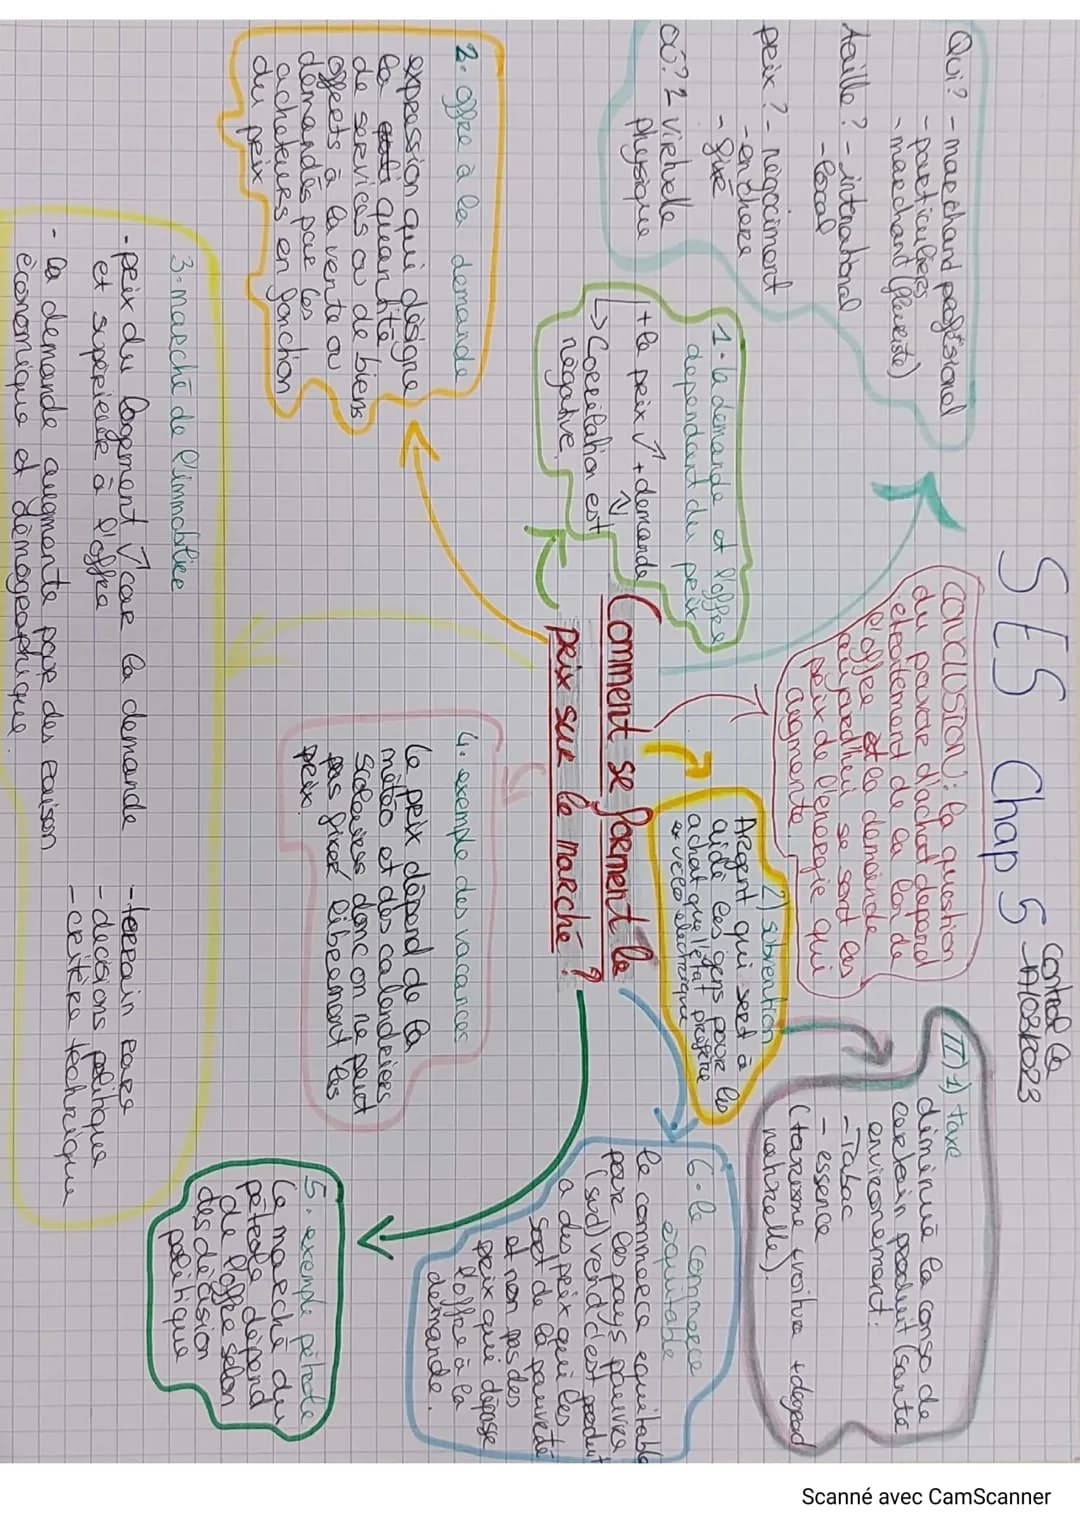 SES Chap 5
Control le
17/03/2023
Comment se forment le
prix sur le marché ?
Qui? - marchand proféssional
- particuliers
- marchand (fleuriste)
taille? - international
- local
prix? - negociment
- enchere
- fixé
où? virtuelle
physique
1- la demande et l'offre
dependant du prix
+ le prix ↑ + demande ↓
↳ Corrélation est
négative.
2- offre à la demande
expression qui désigne
la quantité
de services ou de biens
offerts à la vente ou
demandés par les
acheteurs en fonction
du prix
3- marché de l'immobilier
- prix du logement ↑ car la demande
et supérieure à l'offre
- la demande augmente pour des raison
économique et démographique.
- terrain rare
- decisions politique
- critère technique
4. exemple des vacances
Le prix dépend de la
météo et des calandriers
scolaires donc on ne peut
pas fixer librement les
prix
5. exemple pétrole
Le marché du
pétrole dépend
de l'offre selon
des décision
politique
6- le commerce
equitable
le commerce equitable
pour les pays pauvres
(sud) vend c'est produit
a des prix qui les
sort de la pauvreté
et non pas des
prix qui dépasse
l'offre à la
demande.
II) 1) taxe
diminue la conso de
certain produit (santé
environement.
- Tabac
- essence
(taxisme voiture + degead
naturelle).
2) subvention
Argent qui sert à
aidé les gens pour les
achat que l'état préfère
ex velo electrique
CONCLUSION: la question
du pouvoir d'achat depend
etroitement de la loi de
l'offre et la demande
aujourd'hui se sont les
prix de l'energie qui
augmente.
Scanné avec CamScanner